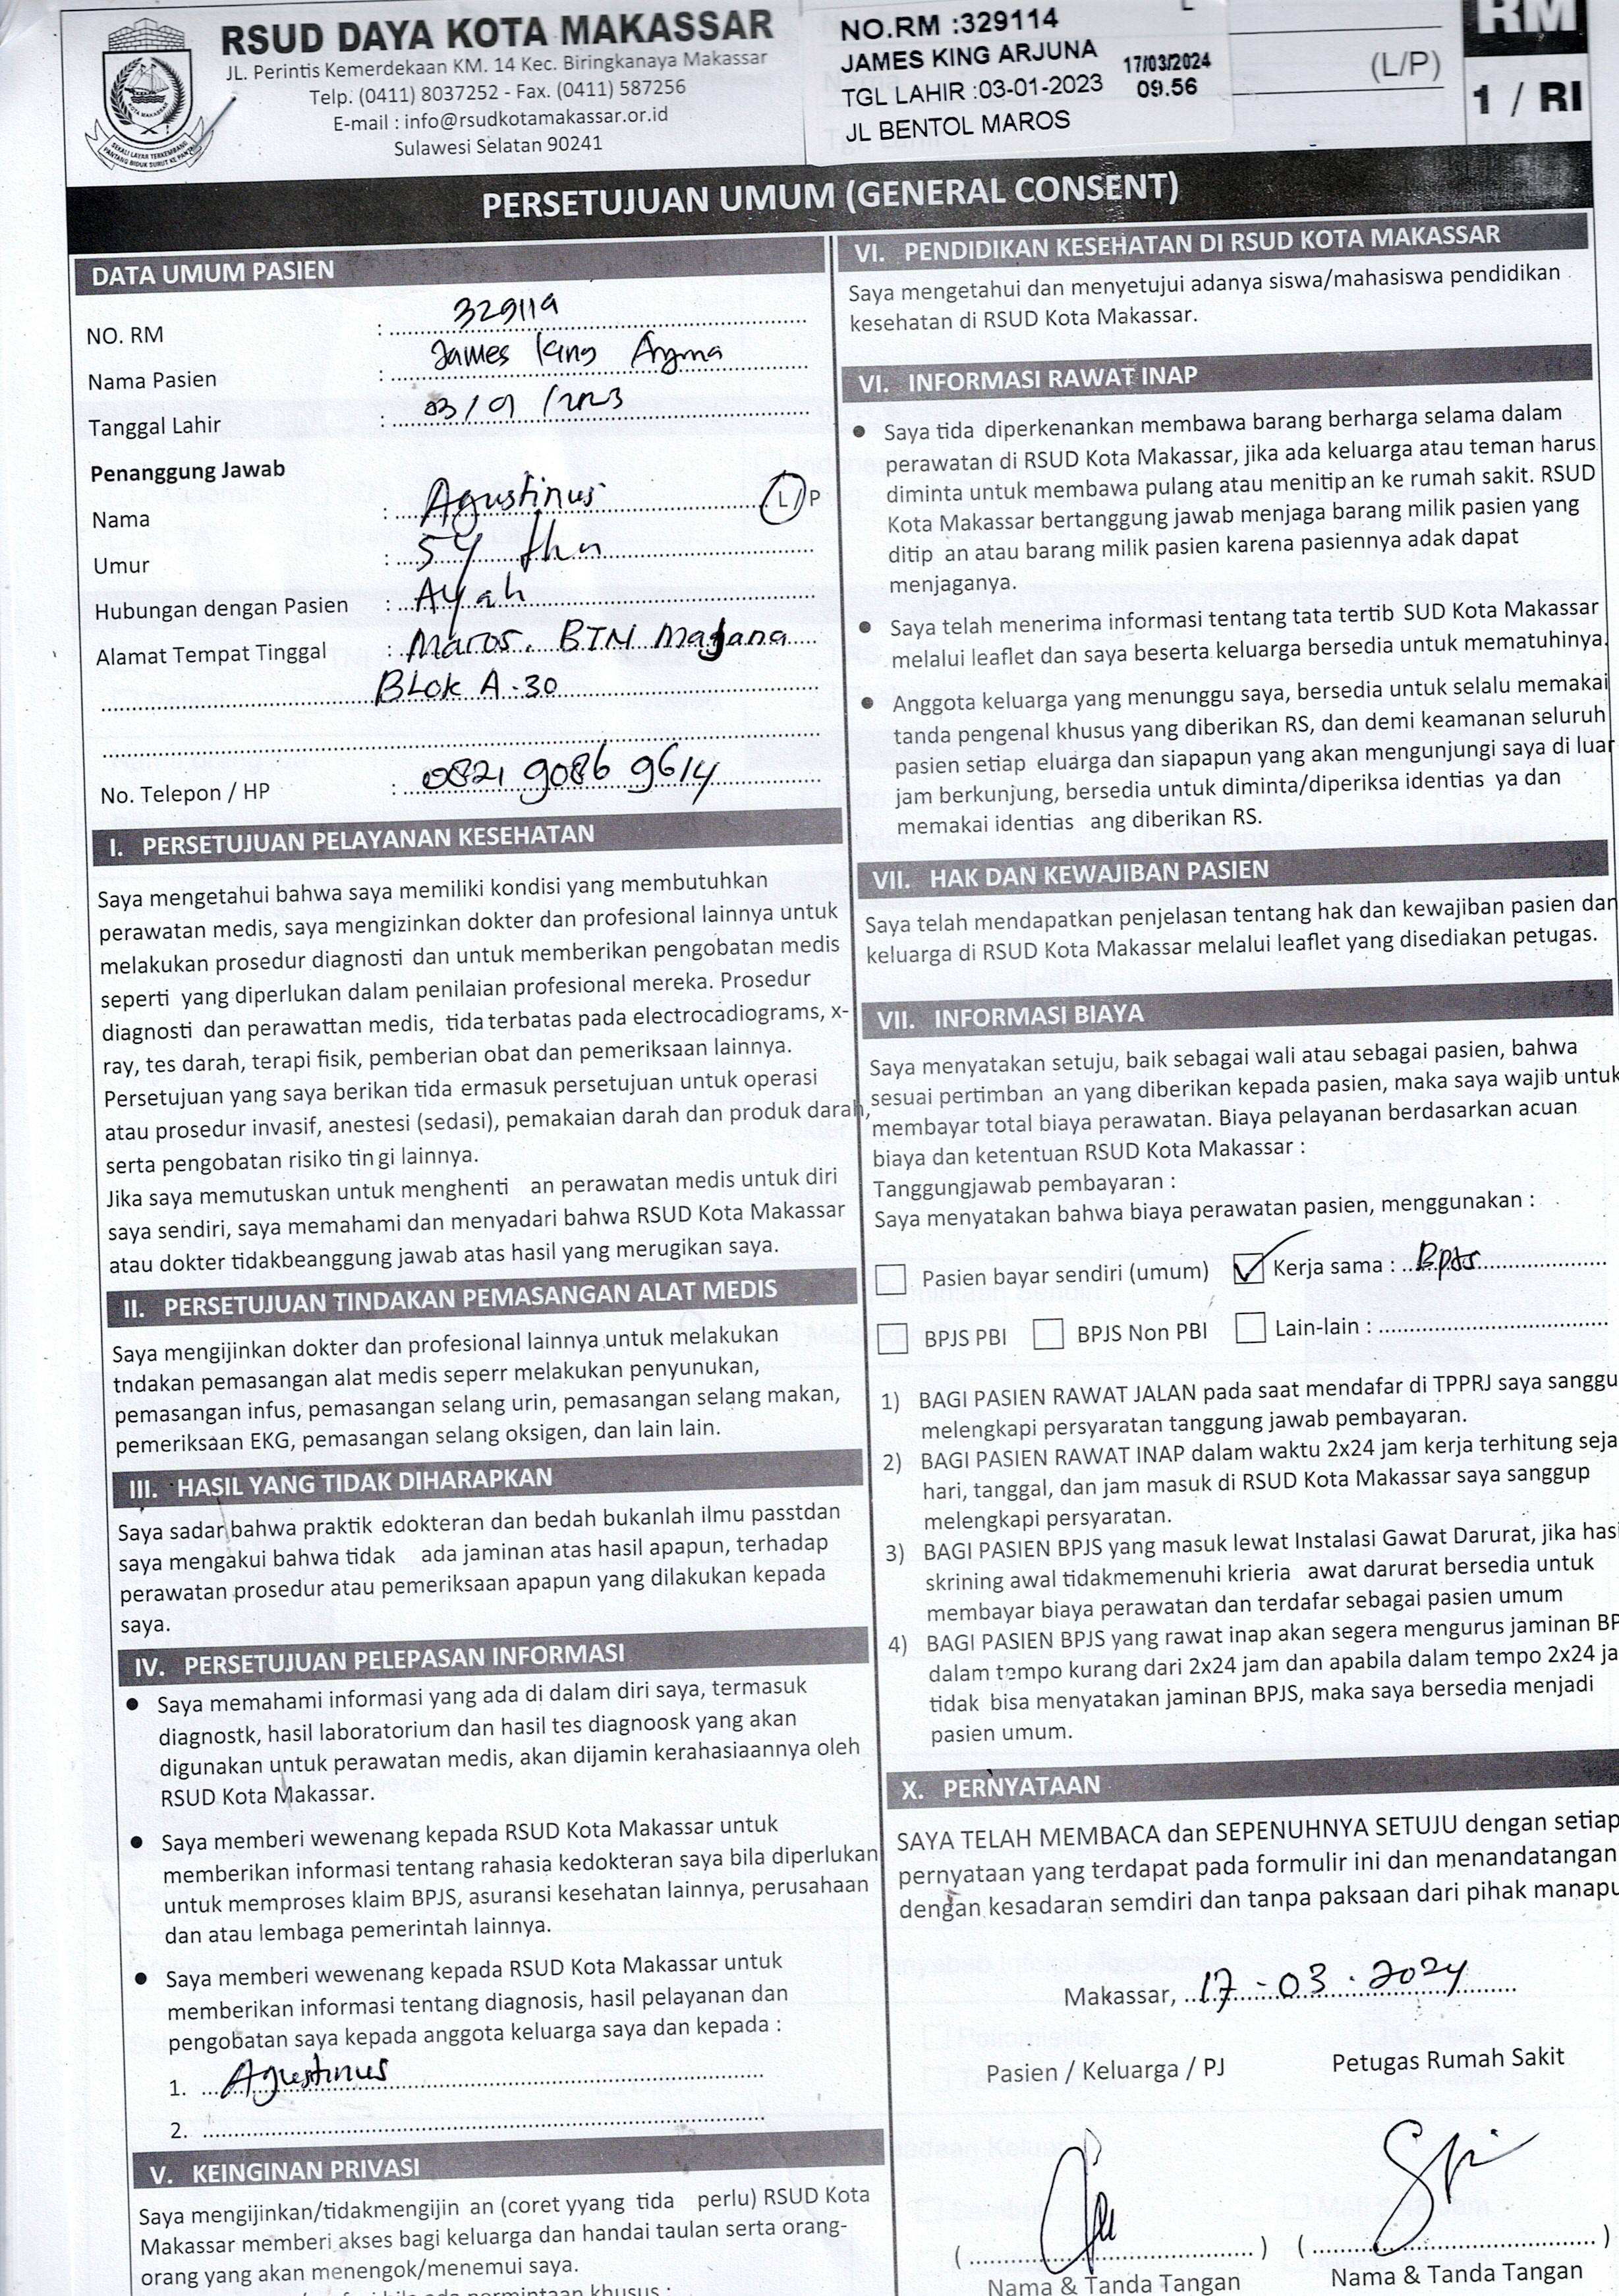 RSUD DAYA KOTA MAKASSAR
JL. Perintis Kemerdekaan KM. 14 Kec. Biringkanaya Makassar
Telp. (0411) 8037252 - Fax. (0411) 587256
E-mail : info@rsudkotamakassar.or.id
Sulawesi Selatan 90241
KOTA MAKASSAR
SEKALI LAYAR TERKEMBANG
PANTANG BIDUK SURUT KE PANTAI
NO.RM :329114
JAMES KING ARJUNA
TGL LAHIR :03-01-2023
17/03/2024
09.56
JL BENTOL MAROS
(L/P)
RM
1 / RI
PERSETUJUAN UMUM (GENERAL CONSENT)
DATA UMUM PASIEN
NO. RM : 329114
Nama Pasien : James King Arjuna
Tanggal Lahir : 03/01/2023
Penanggung Jawab
Nama : Agustinus L/P
Umur : 54 thn
Hubungan dengan Pasien : Ayah
Alamat Tempat Tinggal : Maros. BTN
Blok A-30
No. Telepon / HP : 0821 9086 9614
I. PERSETUJUAN PELAYANAN KESEHATAN
Saya mengetahui bahwa saya memiliki kondisi yang membutuhkan
perawatan medis, saya mengizinkan dokter dan profesional lainnya untuk
melakukan prosedur diagnosti dan untuk memberikan pengobatan medis
seperti yang diperlukan dalam penilaian profesional mereka. Prosedur
diagnosti dan perawattan medis, tida terbatas pada electrocadiograms, x-
ray, tes darah, terapi fisik, pemberian obat dan pemeriksaan lainnya.
Persetujuan yang saya berikan tida ermasuk persetujuan untuk operasi
atau prosedur invasif, anestesi (sedasi), pemakaian darah dan produk darah,
serta pengobatan risiko tin gi lainnya.
Jika saya memutuskan untuk menghenti an perawatan medis untuk diri
saya sendiri, saya memahami dan menyadari bahwa RSUD Kota Makassar
atau dokter tidakbeanggung jawab atas hasil yang merugikan saya.
II. PERSETUJUAN TINDAKAN PEMASANGAN ALAT MEDIS
Saya mengijinkan dokter dan profesional lainnya untuk melakukan
tndakan pemasangan alat medis seperr melakukan penyunukan,
pemasangan infus, pemasangan selang urin, pemasangan selang makan,
pemeriksaan EKG, pemasangan selang oksigen, dan lain lain.
III. HASIL YANG TIDAK DIHARAPKAN
Saya sadar bahwa praktik edokteran dan bedah bukanlah ilmu passtdan
saya mengakui bahwa tidak ada jaminan atas hasil apapun, terhadap
perawatan prosedur atau pemeriksaan apapun yang dilakukan kepada
saya.
IV. PERSETUJUAN PELEPASAN INFORMASI
● Saya memahami informasi yang ada di dalam diri saya, termasuk
diagnostk, hasil laboratorium dan hasil tes diagnoosk yang akan
digunakan untuk perawatan medis, akan dijamin kerahasiaannya oleh
RSUD Kota Makassar.
● Saya memberi wewenang kepada RSUD Kota Makassar untuk
memberikan informasi tentang rahasia kedokteran saya bila diperlukan
untuk memproses klaim BPJS, asuransi kesehatan lainnya, perusahaan
dan atau lembaga pemerintah lainnya.
● Saya memberi wewenang kepada RSUD Kota Makassar untuk
memberikan informasi tentang diagnosis, hasil pelayanan dan
pengobatan saya kepada anggota keluarga saya dan kepada :
1. Agustinus
2.
V. KEINGINAN PRIVASI
Saya mengijinkan/tidakmengijin an (coret yyang tida perlu) RSUD Kota
Makassar memberi akses bagi keluarga dan handai taulan serta orang-
orang yang akan menengok/menemui saya.
VI. PENDIDIKAN KESEHATAN DI RSUD KOTA MAKASSAR
Saya mengetahui dan menyetujui adanya siswa/mahasiswa pendidikan
kesehatan di RSUD Kota Makassar.
VI. INFORMASI RAWAT INAP
● Saya tida diperkenankan membawa barang berharga selama dalam
perawatan di RSUD Kota Makassar, jika ada keluarga atau teman harus
diminta untuk membawa pulang atau menitip an ke rumah sakit. RSUD
Kota Makassar bertanggung jawab menjaga barang milik pasien yang
ditip an atau barang milik pasien karena pasiennya adak dapat
menjaganya.
● Saya telah menerima informasi tentang tata tertib SUD Kota Makassar
melalui leaflet dan saya beserta keluarga bersedia untuk mematuhinya.
● Anggota keluarga yang menunggu saya, bersedia untuk selalu memakai
tanda pengenal khusus yang diberikan RS, dan demi keamanan seluruh
pasien setiap eluarga dan siapapun yang akan mengunjungi saya di luar
jam berkunjung, bersedia untuk diminta/diperiksa identias ya dan
memakai identias ang diberikan RS.
VII. HAK DAN KEWAJIBAN PASIEN
Saya telah mendapatkan penjelasan tentang hak dan kewajiban pasien dan
keluarga di RSUD Kota Makassar melalui leaflet yang disediakan petugas.
VII. INFORMASI BIAYA
Saya menyatakan setuju, baik sebagai wali atau sebagai pasien, bahwa
sesuai pertimban an yang diberikan kepada pasien, maka saya wajib untuk
membayar total biaya perawatan. Biaya pelayanan berdasarkan acuan
biaya dan ketentuan RSUD Kota Makassar :
Tanggungjawab pembayaran :
Saya menyatakan bahwa biaya perawatan pasien, menggunakan :
☐ Pasien bayar sendiri (umum) ☑ Kerja sama : BPJS
☐ BPJS PBI ☐ BPJS Non PBI ☐ Lain-lain :
1) BAGI PASIEN RAWAT JALAN pada saat mendafar di TPPRJ saya sanggu
melengkapi persyaratan tanggung jawab pembayaran.
2) BAGI PASIEN RAWAT INAP dalam waktu 2x24 jam kerja terhitung seja
hari, tanggal, dan jam masuk di RSUD Kota Makassar saya sanggup
melengkapi persyaratan.
3) BAGI PASIEN BPJS yang masuk lewat Instalasi Gawat Darurat, jika hasi
skrining awal tidakmemenuhi krieria awat darurat bersedia untuk
membayar biaya perawatan dan terdafar sebagai pasien umum
4) BAGI PASIEN BPJS yang rawat inap akan segera mengurus jaminan BP
dalam tempo kurang dari 2x24 jam dan apabila dalam tempo 2x24 ja
tidak bisa menyatakan jaminan BPJS, maka saya bersedia menjadi
pasien umum.
X. PERNYATAAN
SAYA TELAH MEMBACA dan SEPENUHNYA SETUJU dengan setiap
pernyataan yang terdapat pada formulir ini dan menandatangan
dengan kesadaran semdiri dan tanpa paksaan dari pihak manapu
Makassar, 17-03-2024
Pasien / Keluarga / PJ Petugas Rumah Sakit
( ) ( )
Nama & Tanda Tangan Nama & Tanda Tangan